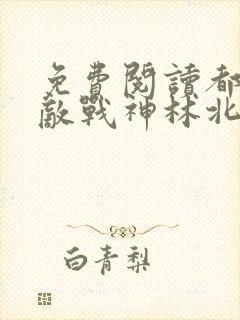 免費閱讀都
敵戰神林北
白青梨